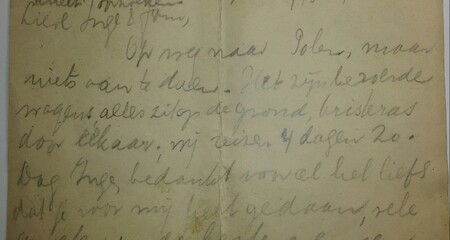 Lieve Inge & Jons,
Op weg naar Polen, maar
niets aan te doen. Het zijn beroerde
wagens, alles zit op de grond, kriskras
door elkaar, wij reizen 4 dagen zo.
Dag Inge, bedankt voor al het liefs
dat je voor mij hebt gedaan, vele